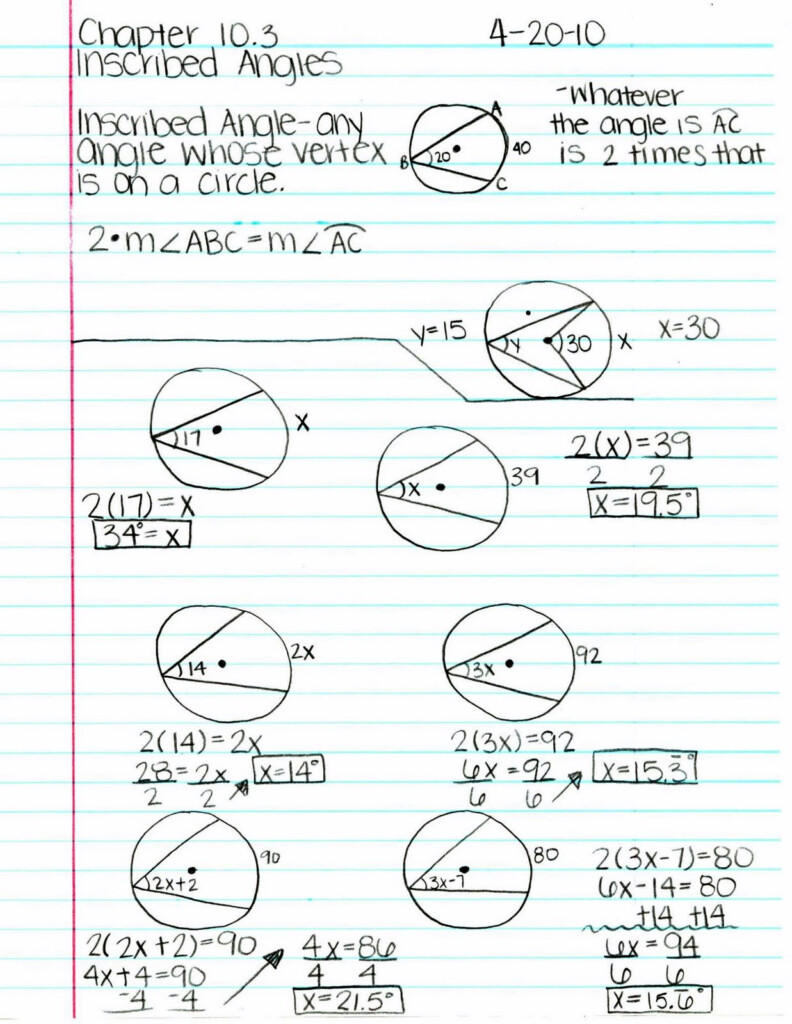 Chapter 10.3 4-20-10
Inscribed Angles
Inscribed Angle-any
angle whose vertex
is on a circle.
A
B 20° 40
C
-Whatever
the angle is AC
is 2 times that
2•m∠ABC=m∠AC
y=15 y 30 x x=30
17 x
2(17)=x
34°=x
x 39
2(x)=39
2 2
x=19.5°
14 2x
2(14)=2x
28=2x
2 2
x=14°
3x 92
2(3x)=92
6x=92
6 6
x=15.3°
2x+2 90
2(2x+2)=90
4x+4=90
-4 -4
4x=86
4 4
x=21.5°
3x-7 80
2(3x-7)=80
6x-14=80
+14 +14
6x=94
6 6
x=15.6°